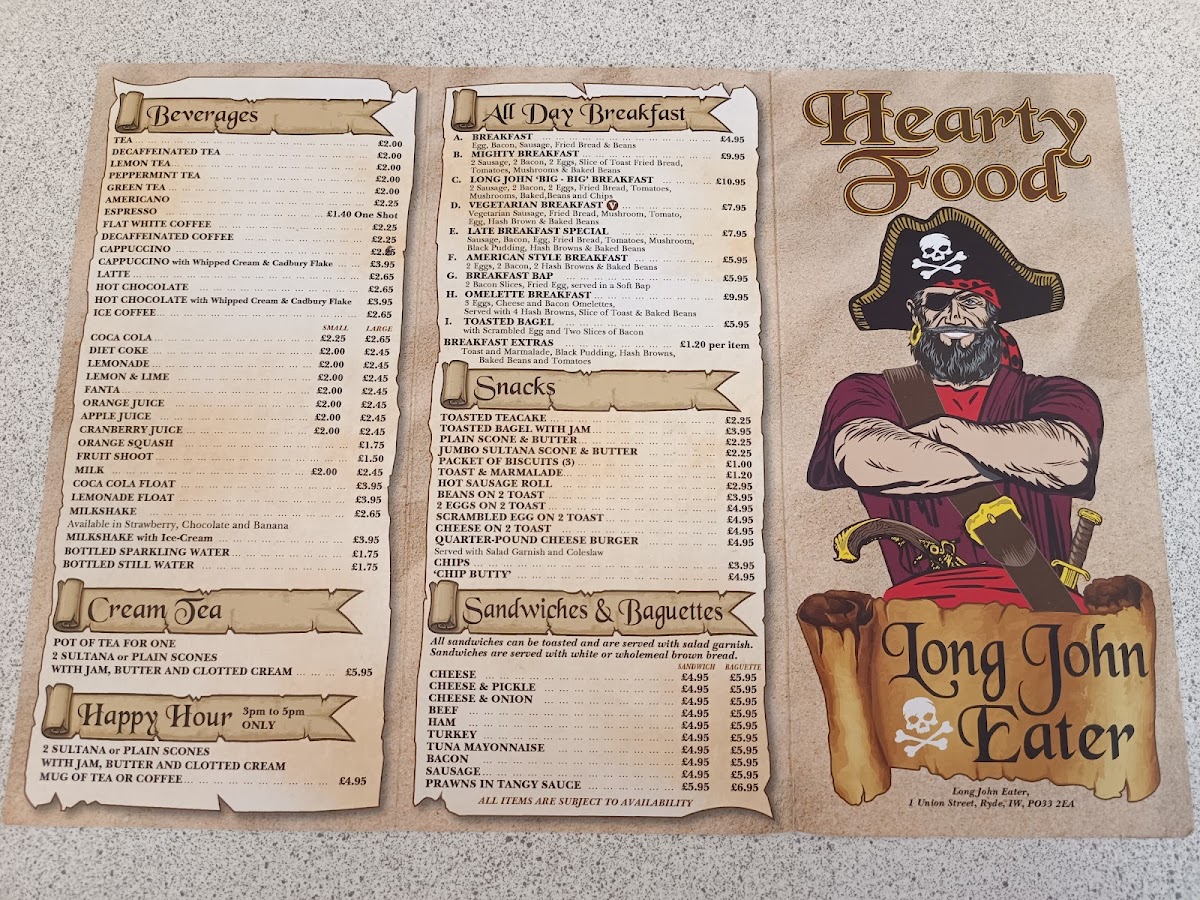 Beverages
TEA £2.00
DECAFFEINATED TEA £2.00
LEMON TEA £2.00
PEPPERMINT TEA £2.00
GREEN TEA £2.00
AMERICANO £2.25
ESPRESSO £1.40 One Shot
FLAT WHITE COFFEE £2.25
DECAFFEINATED COFFEE £2.25
CAPPUCCINO
CAPPUCCINO with Whipped Cream & Cadbury Flake £3.95
LATTE £2.65
HOT CHOCOLATE £2.65
HOT CHOCOLATE with Whipped Cream & Cadbury Flake £3.95
ICE COFFEE £2.65
SMALL LARGE
COCA COLA £2.25 £2.65
DIET COKE £2.00 £2.45
LEMONADE £2.00 £2.45
LEMON & LIME £2.00 £2.45
FANTA £2.00 £2.45
ORANGE JUICE £2.00 £2.45
APPLE JUICE £2.00 £2.45
CRANBERRY JUICE £2.00 £2.45
ORANGE SQUASH £1.75
FRUIT SHOOT £1.50
MILK £2.00 £2.45
COCA COLA FLOAT £3.95
LEMONADE FLOAT £3.95
MILKSHAKE £2.65
Available in Strawberry, Chocolate and Banana
MILKSHAKE with Ice-Cream £3.95
BOTTLED SPARKLING WATER £1.75
BOTTLED STILL WATER £1.75
Cream Tea
POT OF TEA FOR ONE
2 SULTANA or PLAIN SCONES
WITH JAM, BUTTER AND CLOTTED CREAM £5.95
Happy Hour 3pm to 5pm
ONLY
2 SULTANA or PLAIN SCONES
WITH JAM, BUTTER AND CLOTTED CREAM
MUG OF TEA OR COFFEE £4.95
All Day Breakfast
A. BREAKFAST £4.95
Egg, Bacon, Sausage, Fried Bread & Beans
B. MIGHTY BREAKFAST £9.95
2 Sausage, 2 Bacon, 2 Eggs, Slice of Toast Fried Bread,
Tomatoes, Mushrooms & Baked Beans
C. LONG JOHN 'BIG - BIG' BREAKFAST £10.95
2 Sausage, 2 Bacon, 2 Eggs, Fried Bread, Tomatoes,
Mushrooms, Baked,Beans and Chips
D. VEGETARIAN BREAKFAST V £7.95
Vegetarian Sausage, Fried Bread, Mushroom, Tomato,
Egg, Hash Brown & Baked Beans
E. LATE BREAKFAST SPECIAL £7.95
Sausage, Bacon, Egg, Fried Bread, Tomatoes, Mushroom,
Black Pudding, Hash Browns & Baked Beans
F. AMERICAN STYLE BREAKFAST £5.95
2 Eggs, 2 Bacon, 2 Hash Browns & Baked Beans
G. BREAKFAST BAP £5.95
2 Bacon Slices, Fried Egg, served in a Soft Bap
H. OMELETTE BREAKFAST £9.95
3 Eggs, Cheese and Bacon Omelettes,
Served with 4 Hash Browns, Slice of Toast & Baked Beans
I. TOASTED BAGEL £5.95
with Scrambled Egg and Two Slices of Bacon
BREAKFAST EXTRAS £1.20 per item
Toast and Marmalade, Black Pudding, Hash Browns,
Baked Beans and Tomatoes
Snacks
TOASTED TEACAKE £2.25
TOASTED BAGEL WITH JAM £3.95
PLAIN SCONE & BUTTER £2.25
JUMBO SULTANA SCONE & BUTTER £2.25
PACKET OF BISCUITS (3) £1.00
TOAST & MARMALADE £1.20
HOT SAUSAGE ROLL £2.95
BEANS ON 2 TOAST £3.95
2 EGGS ON 2 TOAST £4.95
SCRAMBLED EGG ON 2 TOAST £4.95
CHEESE ON 2 TOAST £4.95
QUARTER-POUND CHEESE BURGER £4.95
Served with Salad Garnish and Coleslaw
CHIPS £3.95
'CHIP BUTTY' £4.95
Sandwiches & Baguettes
All sandwiches can be toasted and are served with salad garnish.
Sandwiches are served with white or wholemeal brown bread.
SANDWICH BAGUETTE
CHEESE £4.95 £5.95
CHEESE & PICKLE £4.95 £5.95
CHEESE & ONION £4.95 £5.95
BEEF £4.95 £5.95
HAM £4.95 £5.95
TURKEY £4.95 £5.95
TUNA MAYONNAISE £4.95 £5.95
BACON £4.95 £5.95
SAUSAGE £4.95 £5.95
PRAWNS IN TANGY SAUCE £5.95 £6.95
ALL ITEMS ARE SUBJECT TO AVAILABILITY
Hearty
Food
Long John
Eater
Long John Eater,
1 Union Street, Ryde, IW, PO33 2EA